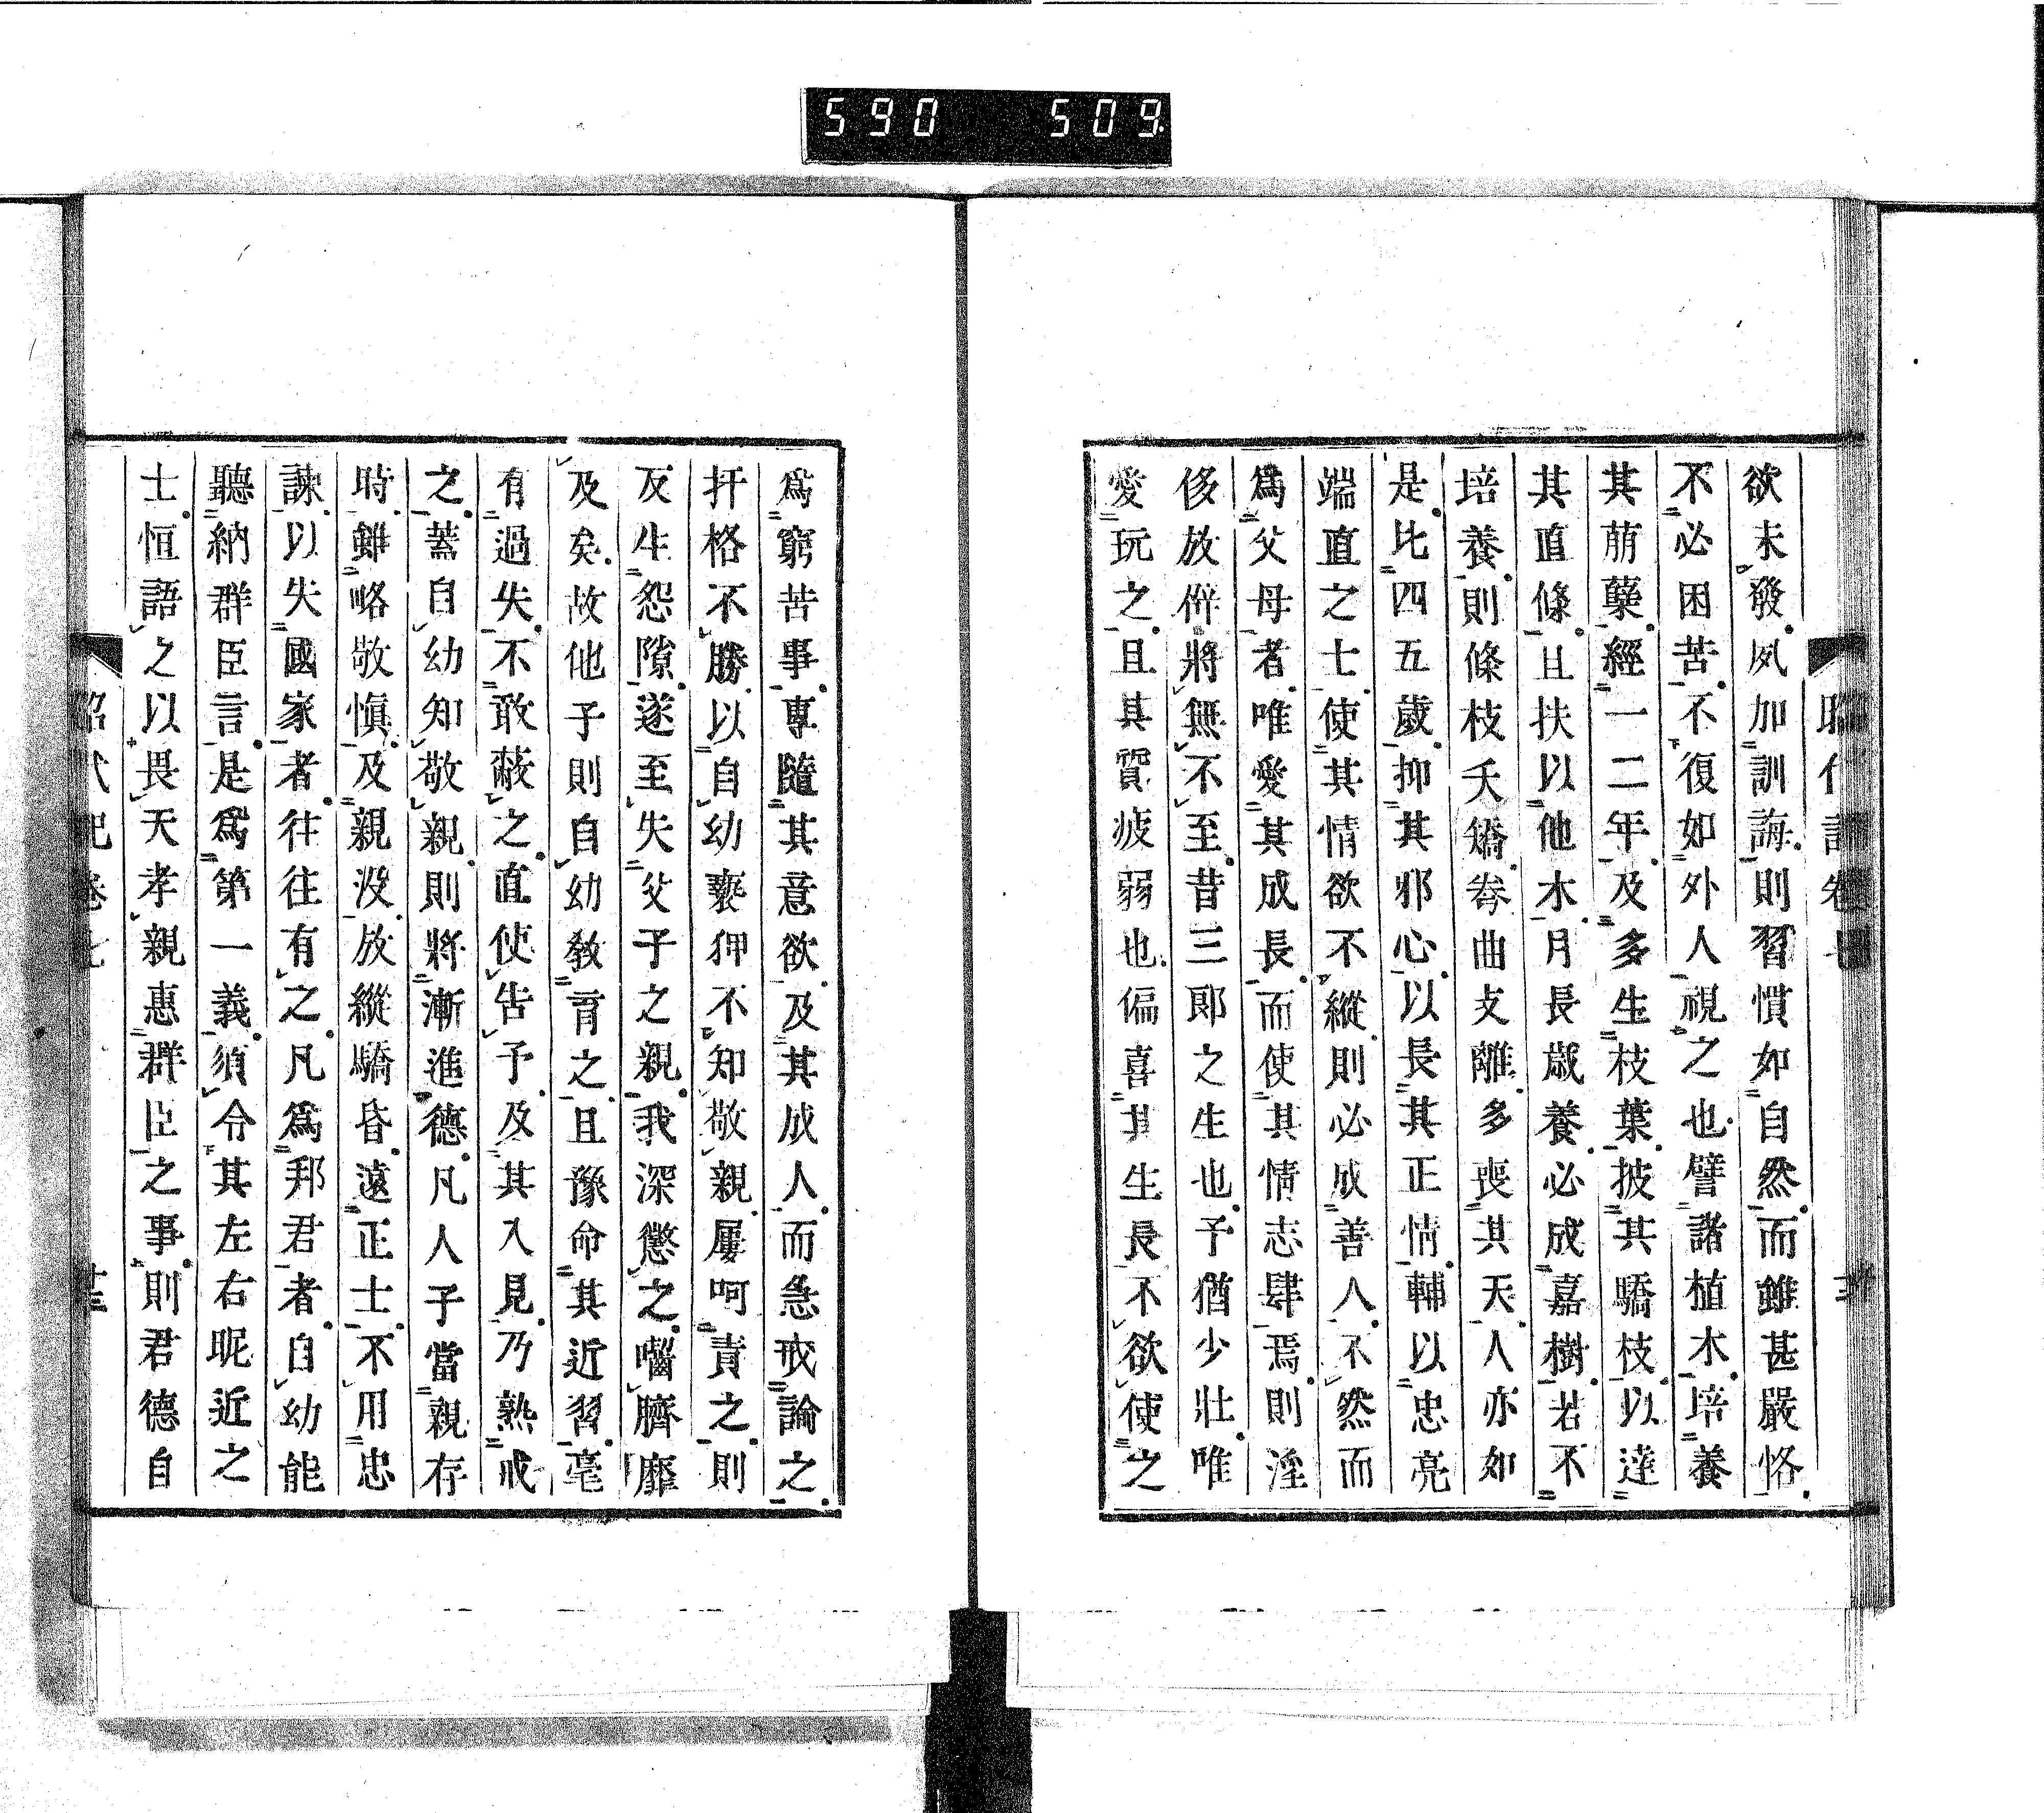 590 509
欲未發夙加訓誨則習慣如自然而雖甚嚴恪
不必困苦不復如外人視之也譬諸植木培養
其萠蘖經一二年及多生枝葉披其驕枝以達
其直條且扶以他木月長歳養必成嘉樹若不
培養則條枝夭矯卷曲支離多喪其天人亦如
是比四五歳抑其邪心以長其正情輔以忠亮
端直之士使其情欲不縱則必成善人不然而
爲父母者唯愛其成長而使其情志肆焉則淫
侈放僻將無不至昔三郎之生也予猶少壯唯
愛玩之且其質疲弱也偏喜其生長不欲使之
爲窮苦事專隨其意欲及其成人而急戒論之
扞格不勝以自幼褻狎不知敬親屢呵責之則
反生怨隙遂至失父子之親我深懲之噬臍靡
及矣故他子則自幼敎育之且豫命其近習毫
有過失不敢蔽之直使告予及其入見乃熟戒
之蓋自幼知敬親則將漸進德凡人子當親存
時雖略敬愼及親沒放縱驕昏遠正士不用忠
諫以失國家者往往有之凡爲邦君者自幼能
聽納群臣言是爲第一義須令其左右昵近之
士恒語之以畏天孝親惠群臣之事則君德自